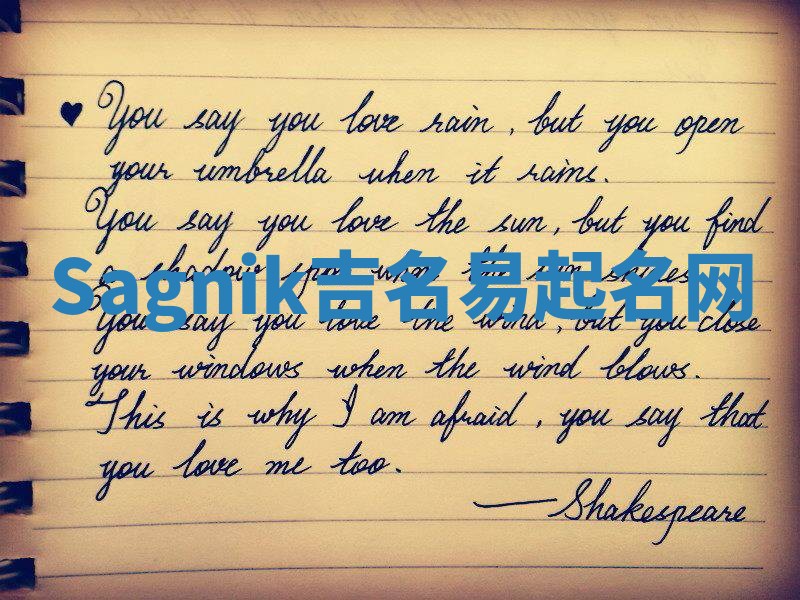 ♥ You say you love rain, but you open
your umbrella when it rains.
You say you love the sun, but you find
a shadow spot when the sun shines.
Sagnik吉名易起名网
You say you love the wind, but you close
your windows when the wind blows.
This is why I am afraid, you say that
you love me too.
— Shakespeare